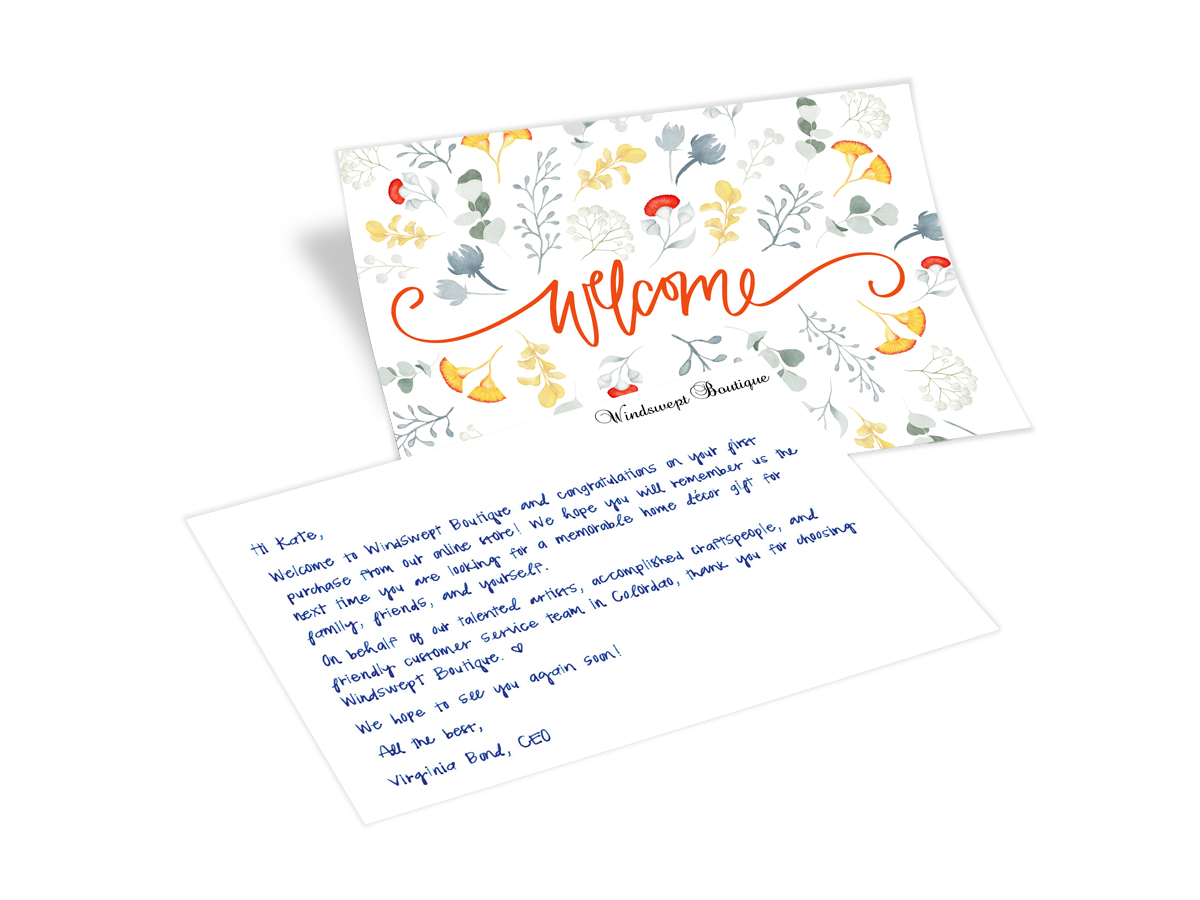 welcome
Windswept Boutique
Hi Kate,
Welcome to Windswept Boutique and congratulations on your first
purchase from our online store! We hope you will remember us the
next time you are looking for a memorable home décor gift for
family, friends, and yourself.
On behalf of our talented artists, accomplished craftspeople, and
friendly customer service team in Colordao, thank you for choosing
Windswept Boutique. ♡
We hope to see you again soon!
All the best,
Virginia Bond, CEO